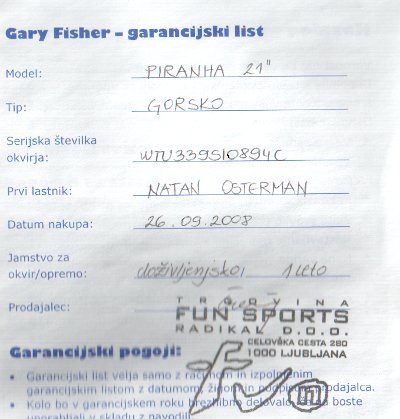 Gary Fisher – garancijski list
Model: PIRANHA 21"
Tip: GORSKO
Serijska številka
okvirja: WTU339S10894C
Prvi lastnik: NATAN OSTERMAN
Datum nakupa: 26.09.2008
Jamstvo za
okvir/opremo: doživljenjsko, 1 leto
TRGOVINA
Prodajalec: FUN SPORTS
RADIKAL D.O.O.
CELOVŠKA CESTA 280
1000 LJUBLJANA
Garancijski pogoji:
• Garancijski list velja samo z računom in izpolnjenim
garancijskim listom z datumom, žigom in podpisom prodajalca.
• Kolo bo v garancijskem roku brezhibno delovalo, če ga boste
uporabljali v skladu z navodili